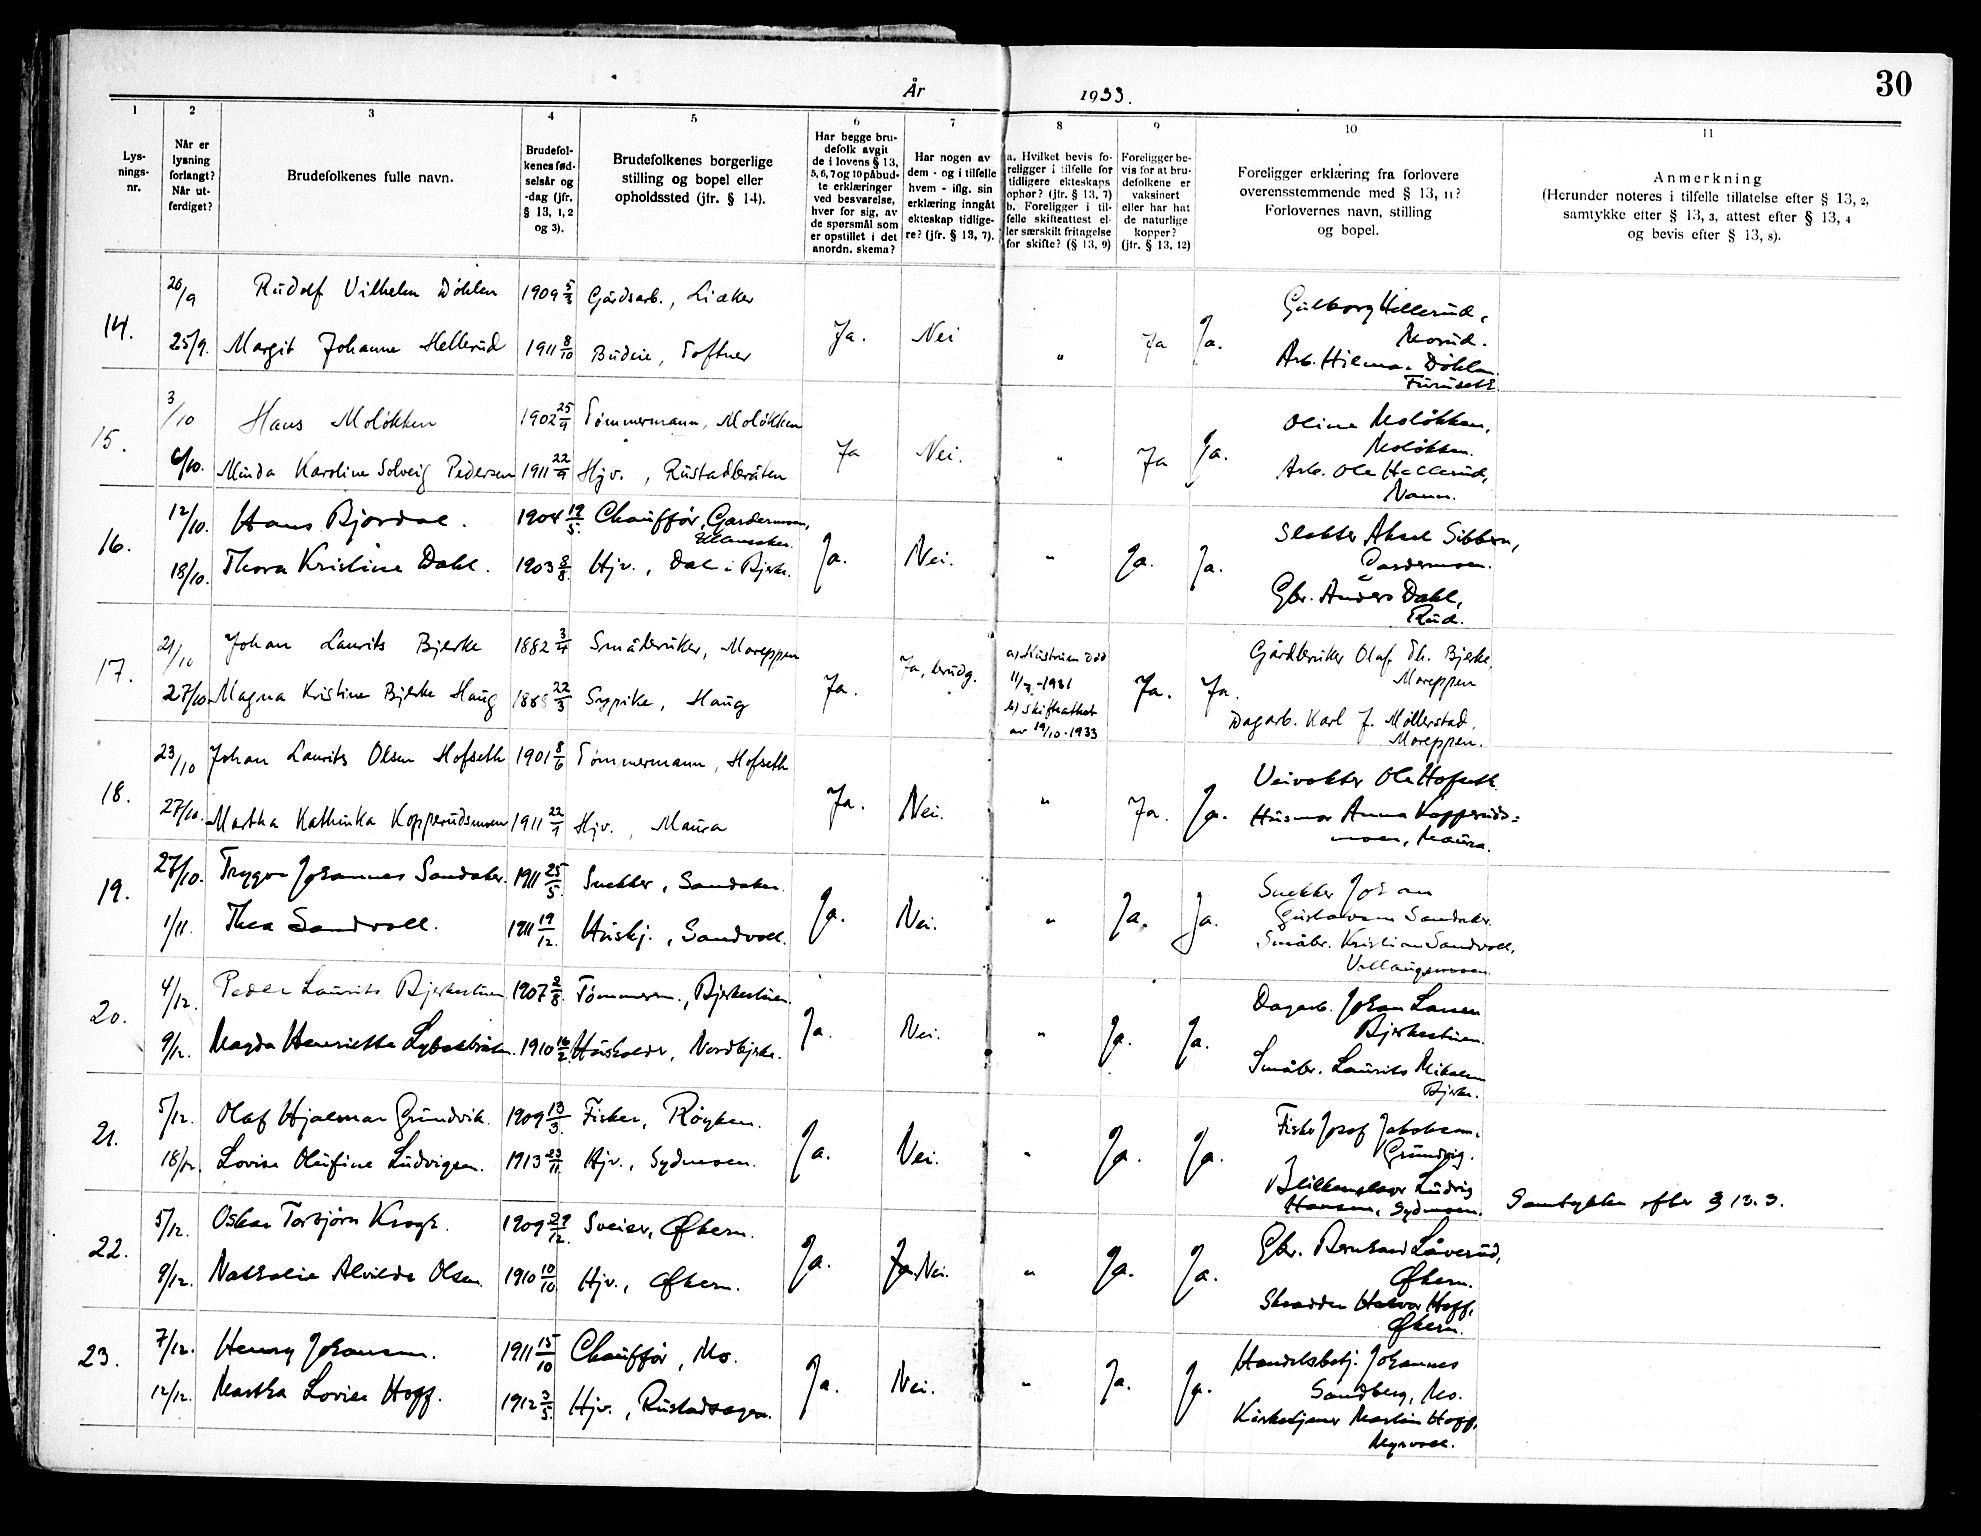 30
År 1933.
1 2 3 4 5 6 7 8 9 10 11
Lys-
nings-
nr.
Når er
lysning
forlangt?
Når ut-
ferdiget?
Brudefolkenes fulle navn.
Brudefol-
kenes fød-
selsår og
-dag (jfr.
§ 13, 1, 2
og 3).
Brudefolkenes borgerlige
stilling og bopel eller
opholdssted (jfr. § 14).
Har begge bru-
defolk avgit
de i lovens § 13,
5, 6, 7 og 10 påbud-
te erklæringer
ved besvarelse,
hver for sig, av
de spørsmål som
er opstillet i det
anordn. skema?
Har nogen av
dem - og i tilfelle
hvem - iflg. sin
erklæring inngåt
ekteskap tidlige-
re? (jfr. § 13, 7).
a. Hvilket bevis fo-
religger i tilfelle for
tidligere ekteskaps
ophør? (jfr. § 13, 7)
b. Foreligger i til-
felle skifteattest el-
ler særskilt fritagelse
for skifte? (§ 13, 9)
Foreligger be-
vis for at bru-
defolkene er
vaksinert
eller har hat
de naturlige
kopper?
(jfr. § 13, 12)
Foreligger erklæring fra forlovere
overensstemmende med § 13, 11?
Forlovernes navn, stilling
og bopel.
Anmerkning
(Herunder noteres i tilfelle tillatelse efter § 13, 2,
samtykke efter § 13, 3, attest efter § 13, 4
og bevis efter § 13, 8).
14.
20/9 Rudolf Vilhelm Døhlen 1909 5/3 Gårdsarb., Liaker
25/9. Margit Johanne Hellerud 1911 8/10 Budeie, Toftner
Ja. Nei " Ja Ja.
Gulborg Hellerud,
Morud.
Arb. Hilmar Døhlen
Furuseth
15.
3/10 Hans Moløkken 1902 25/9 Tømmermann, Moløkken
6/10. Minda Karoline Solveig Pedersen 1911 22/9 Hjv., Rustadbråten
Ja Nei. " Ja Ja.
Oline Moløkken,
Moløkken.
Arb. Ole Hellerud,
Nann.
16.
12/10. Hans Bjørdal. 1904 19/5. Chauffør, Gardermoen,
Ullensaker.
18/10. Thora Kristine Dahl. 1903 8/8. Hjv., Dal i Bjerke.
Ja. Nei. " Ja. Ja.
Slakter Aksel Sibbern,
Gardermoen.
Gbr. Anders Dahl,
Rud.
17.
21/10 Johan Laurits Bjerke 1882 3/4 Småbruker, Moreppen
27/10 Magna Kristine Bjerke Haug 1888 22/3 Sypike, Haug
Ja. Ja, brudg.
a) Hustruen død
11/7-1931
b) Skifteattest
av 19/10-1933
Ja. Ja.
Gårdbruker Olaf Th. Bjerke,
Moreppen
Dagarb. Karl J. Møllerstad,
Moreppen.
18.
23/10 Johan Laurits Olsen Hofseth 1901 8/6 Tømmermann, Hofseth
27/10. Martha Kathinka Kopperudsmoen 1911 22/9 Hjv., Maura
Ja. Nei. " Ja. Ja.
Veivokter Ole Hofseth
Husmor Anna Kopperuds=
moen, Maura.
19.
27/10. Trygve Johannes Sandaker. 1911 25/5. Snekker, Sandaker.
1/11. Thea Sandvoll. 1911 19/12. Hushj., Sandvoll.
Ja. Nei. " Ja. Ja.
Snekker Johan
Gustavsen Sandaker.
Småbr. Kristian Sandvoll,
20.
4/12. Peder Laurits Bjerkestuen 1907 2/8. Tømmerm., Bjerkestuen.
9/12. Magda Henriette 1910 16/2. Husholder, Nordbjerke.
Ja. Nei. " Ja. Ja.
Dagarb. Johan Larsen
Bjerkestuen.
Småbr. Laurits Mikalsen
Bjerke.
21.
5/12. Olaf Hjalmar Grundvik. 1909 13/3. Fisker, Røyken.
18/12. Lovise Olufine Ludvigsen. 1913 23/11. Hjv., Sydmoen.
Ja. Nei. " Ja. Ja.
Fisker Josef Jakobsen,
Grundvig.
Blikkenslager Ludvig
Hansen, Sydmoen. Samtykke efter § 13.3.
22.
5/12. Oskar Torbjørn Krogh. 1909 29/12. Sveiser, Økern.
9/12. Nathalie Alvilde Olsen. 1910 10/10. Hjv., Økern.
Ja. Ja. Nei. " Ja. Ja.
Gbr. Bernhard Låverud,
Økern.
Skredder Halvor Hoff,
Økern.
23.
7/12. Henry Johansen. 1911 15/10 Chauffør, Mo.
12/12. Martha Lovise Hoff. 1912 3/5. Hjv., Rustadhagen.
Ja. Nei. " Ja. Ja.
Handelsbetj. Johannes
Sandberg, Mo.
Kirketjener Martin Hoff,
Myrvoll.